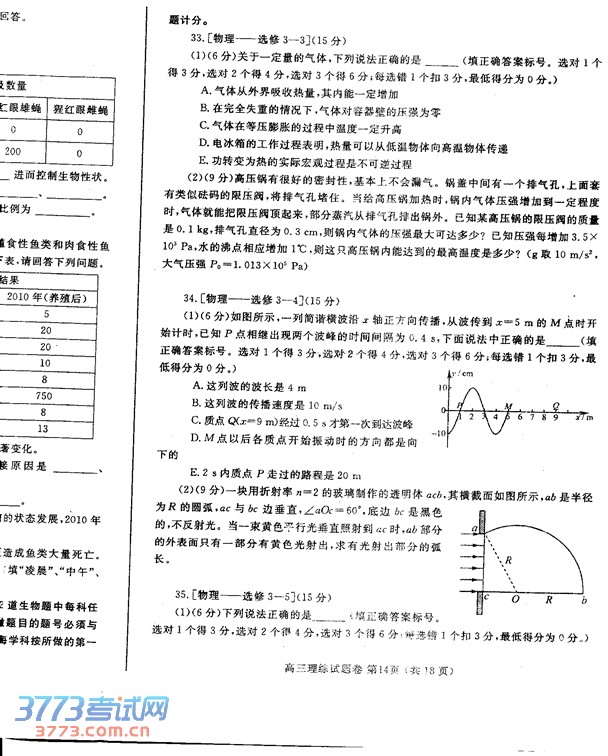 回答。
及数量
红眼雄蝇 猩红眼雌蝇
0 0
200 0
进而控制生物性状。
、 。
比例为 。
植食性鱼类和肉食性鱼
下表,请回答下列问题。
结果
2010年(养殖后)
5
20
20
10
8
750
8
13
著变化。
接原因是 、
。
的状态发展,2010年
造成鱼类大量死亡。
填“凌晨”、“中午”、
2道生物题中每科任
做题目的题号必须与
每学科按所做的第一
题计分。
33.[物理——选修3—3](15分)
(1)(6分)关于一定量的气体,下列说法正确的是 (填正确答案标号。选对1个
得3分,选对2个得4分,选对3个得6分;每选错1个扣3分,最低得分为0分。)
A.气体从外界吸收热量,其内能一定增加
B.在完全失重的情况下,气体对容器壁的压强为零
C.气体在等压膨胀的过程中温度一定升高
D.电冰箱的工作过程表明,热量可以从低温物体向高温物体传递
E.功转变为热的实际宏观过程是不可逆过程
(2)(9分)高压锅有很好的密封性,基本上不会漏气。锅盖中间有一个排气孔,上面套
有类似砝码的限压阀,将排气孔堵住。当给高压锅加热时,锅内气体压强增加到一定程度
时,气体就能把限压阀顶起来,部分蒸汽从排气孔排出锅外。已知某高压锅的限压阀的质量
是0.1 kg,排气孔直径为0.3 cm,则锅内气体的压强最大可达多少?已知压强每增加3.5×
10³ Pa,水的沸点相应增加1℃,则这只高压锅内能达到的最高温度是多少?(g取10 m/s²,
大气压强P₀=1.013×10⁵ Pa)
34.[物理——选修3—4](15分)
(1)(6分)如图所示,一列简谐横波沿x轴正方向传播,从波传到x=5 m的M点时开
始计时,已知P点相继出现两个波峰的时间间隔为0.4 s,下面说法中正确的是 (填
正确答案标号。选对1个得3分,选对2个得4分,选对3个得6分;每选错1个扣3分,最
低得分为0分。)
A.这列波的波长是4 m
B.这列波的传播速度是10 m/s
C.质点Q(x=9 m)经过0.5 s才第一次到达波峰
D.M点以后各质点开始振动时的方向都是向
下的
E.2 s内质点P走过的路程是20 m
y/cm
10
P M Q
0 1 2 3 4 5 6 7 8 9 x/m
-10
(2)(9分)一块用折射率n=2的玻璃制作的透明体acb,其横截面如图所示,ab是半径
为R的圆弧,ac与bc边垂直,∠aOc=60°,底边bc是黑色
的,不反射光。当一束黄色平行光垂直照射到ac时,ab部分
的外表面只有一部分有黄色光射出,求有光射出部分的弧
长。
a
R
c O R b
35.[物理——选修3—5](15分)
(1)(6分)下列说法正确的是 (填正确答案标号。
选对1个得3分,选对2个得4分,选对3个得6分;每选错1个扣3分,最低得分为0分。)
高三理综试题卷 第14页(共18页)
3773考试网
3773.com.cn